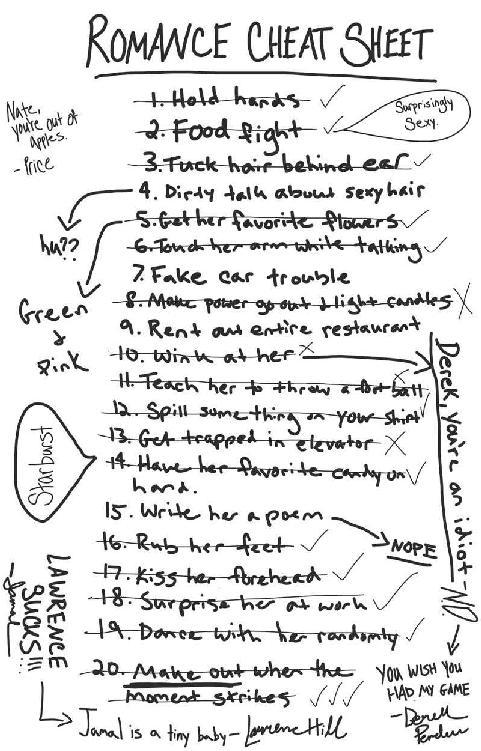 ROMANCE CHEAT SHEET
Nate,
you're out of
apples.
- Price
1. Hold hands ✓
2. Food fight ✓
Surprisingly
Sexy.
3. Tuck hair behind ear ✓
4. Dirty talk about sexy hair
hu??
5. Get her favorite flowers ✓
Green
+
Pink
6. Touch her arm while talking ✓
7. Fake car trouble
8. Make power go out + light candles X
9. Rent out entire restaurant
10. Wink at her X
Derek, you're an idiot - NO.
11. Teach her to throw a football X
12. Spill something on your shirt ✓
13. Get trapped in elevator X
14. Have her favorite candy on ✓
hand.
Starburst
15. Write her a poem
NOPE
16. Rub her feet ✓
17. Kiss her forehead ✓
18. Surprise her at work ✓
19. Dance with her randomly ✓
20. Make out when the
moment strikes ✓✓✓
LAWRENCE
SUCKS!!!
- Jamal
Jamal is a tiny baby - Lawrence Hill
YOU WISH YOU
HAD MY GAME
- Derek